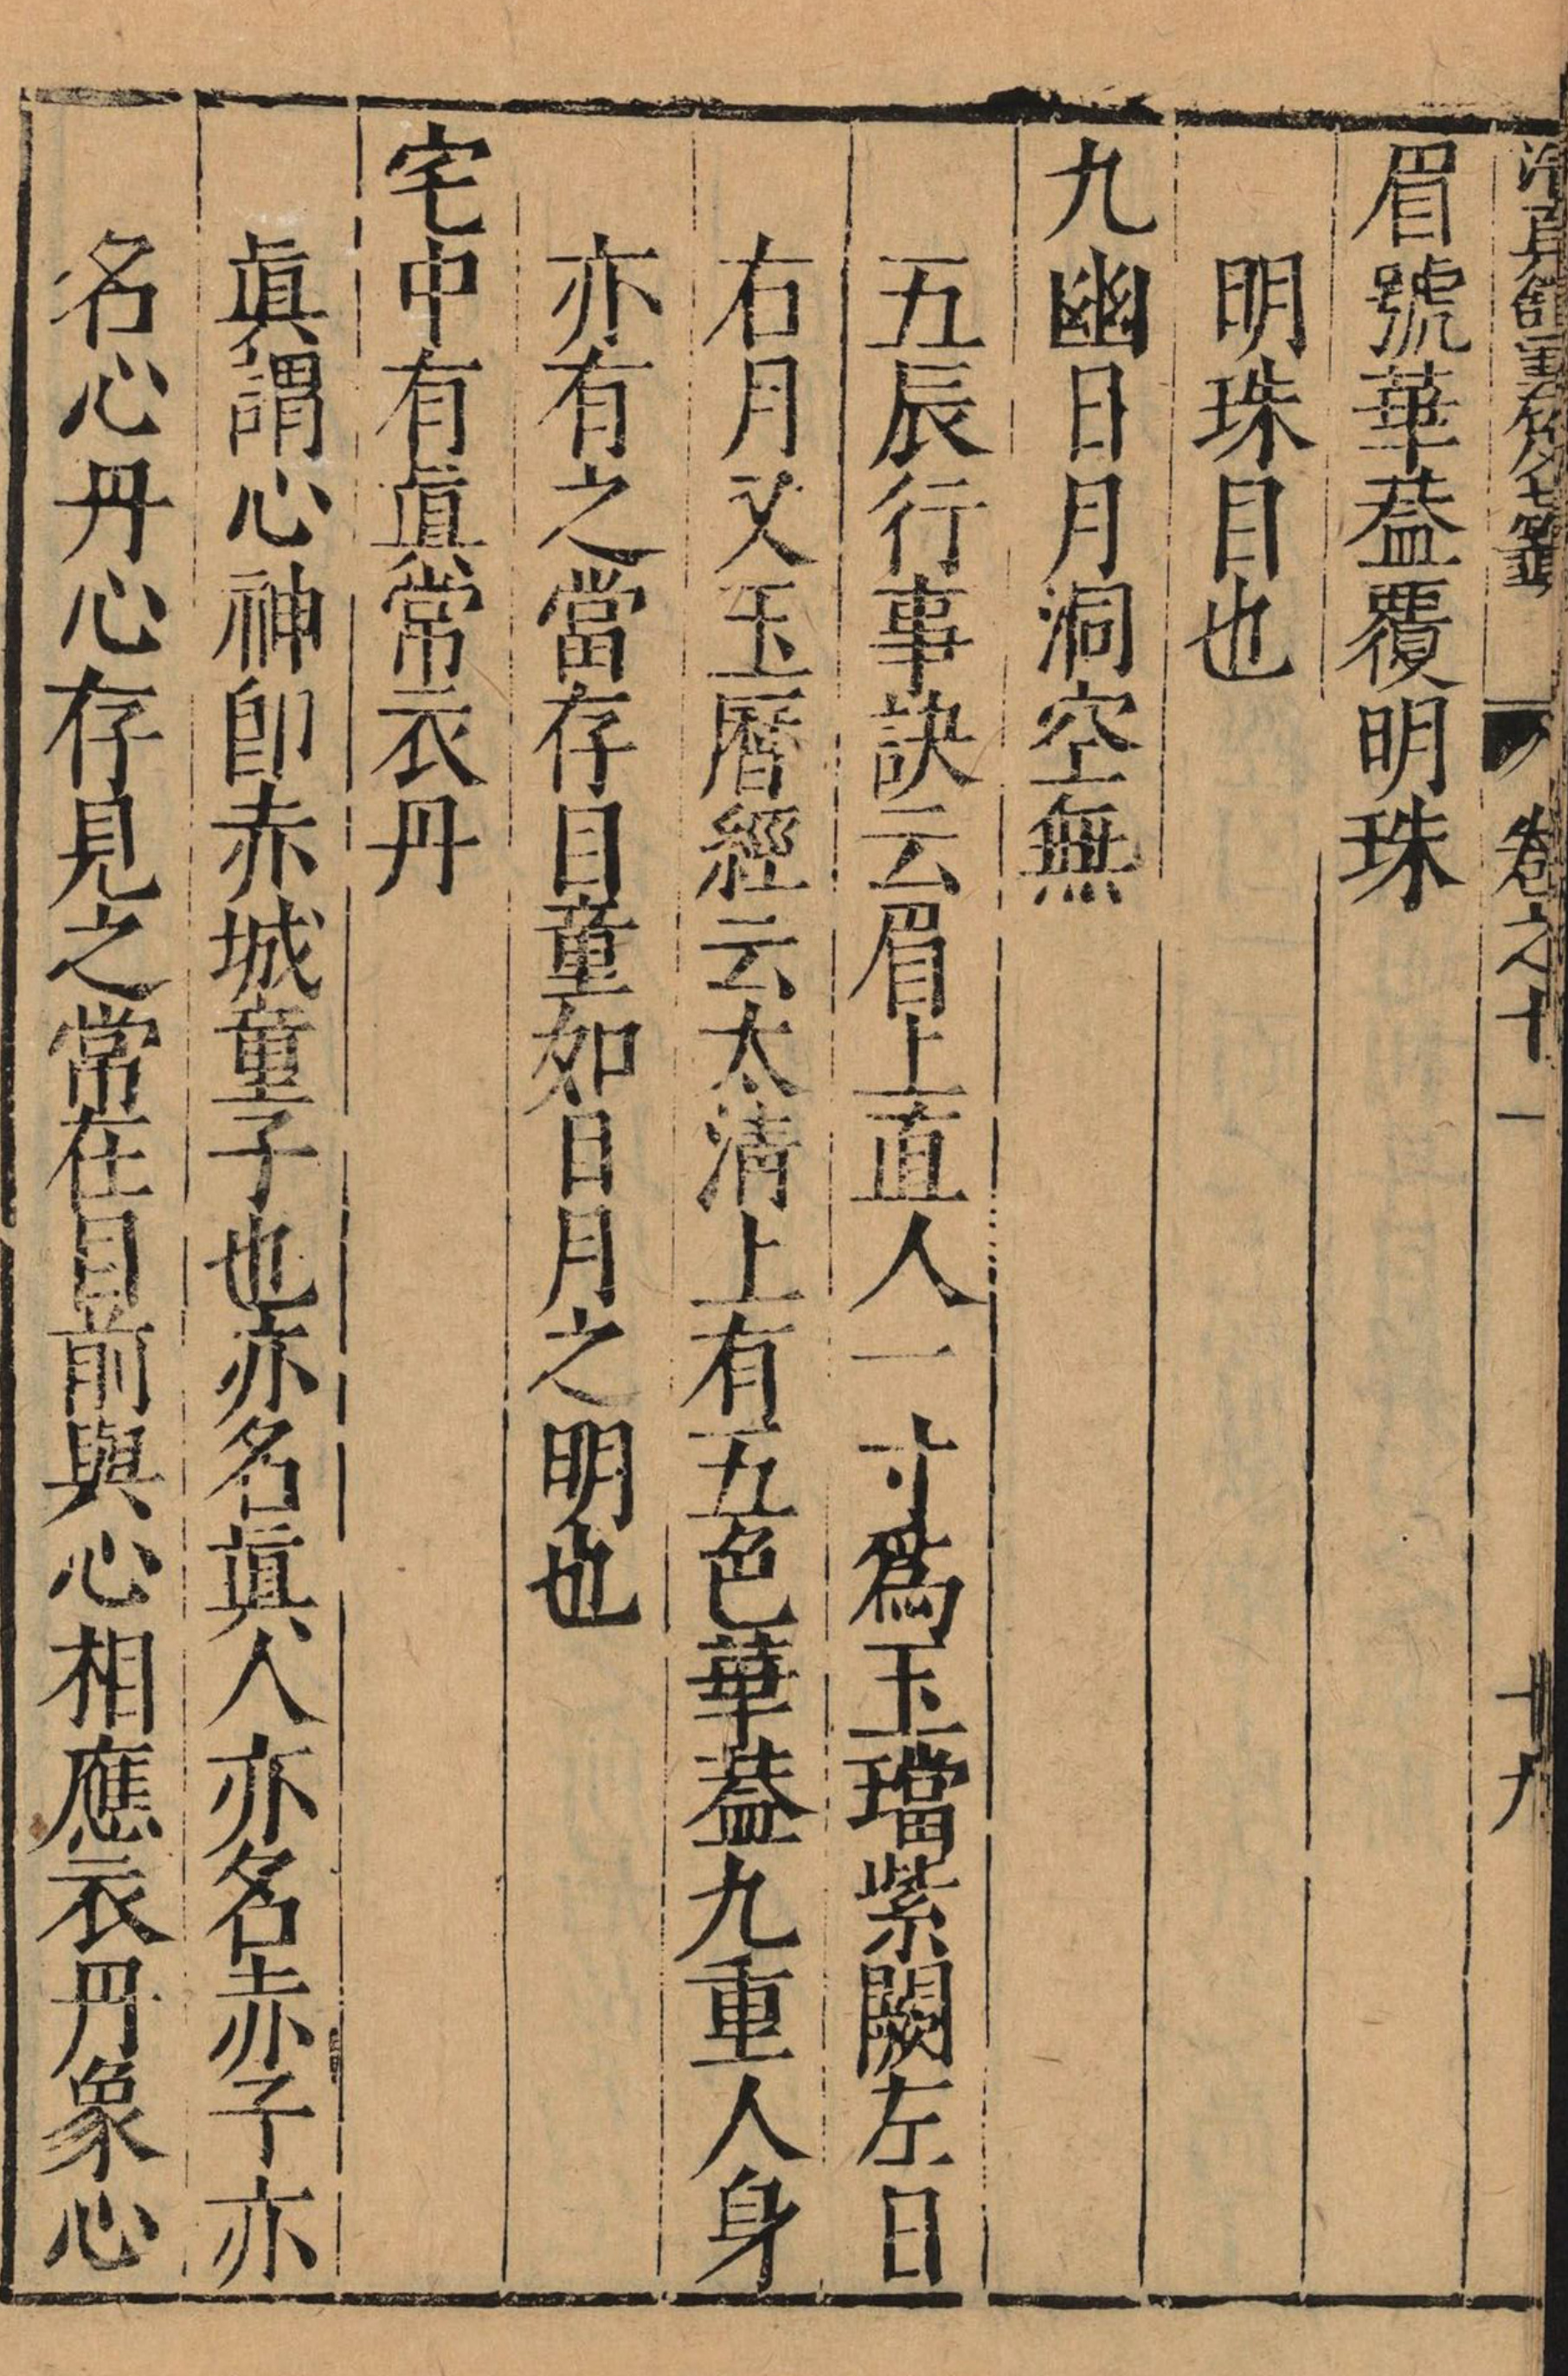 清眞舘重較七籤 卷之十一 十九
眉號華葢覆明珠
明珠目也
九幽日月洞空無
五辰行事訣云眉上直人一寸爲玉璫紫闕左日
右月又玉曆經云太淸上有五色華葢九重人身
亦有之當存目童如日月之明也
宅中有眞常衣丹
眞謂心神卽赤城童子也亦名眞人亦名赤子亦
名心丹心存見之常在目前與心相應衣丹象心